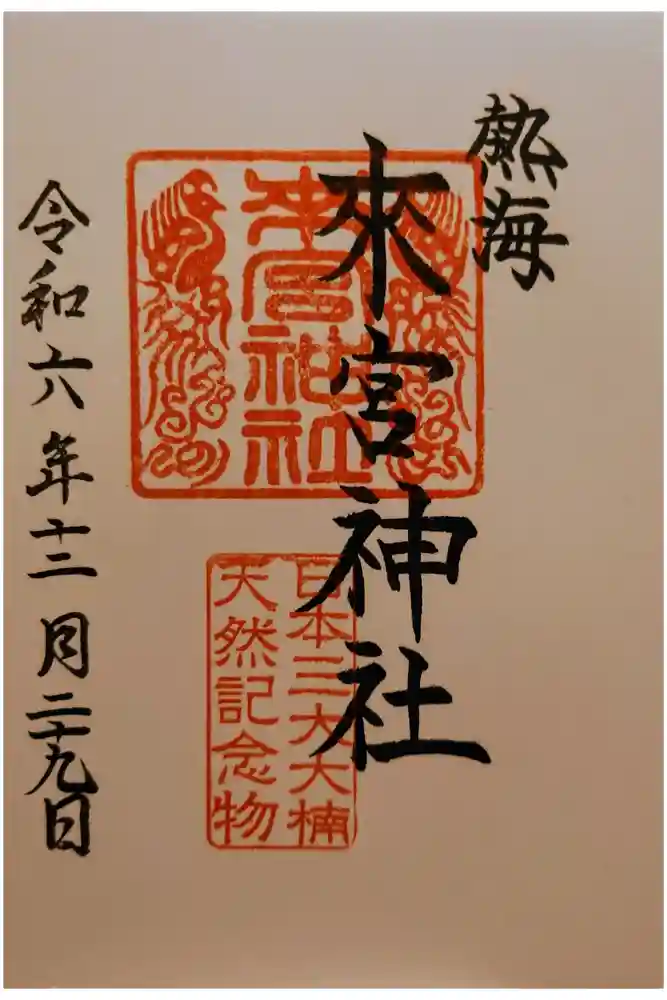 熱海
來宮神社
來宮神社
日本三大大楠
天然記念物
令和六年十二月二十九日